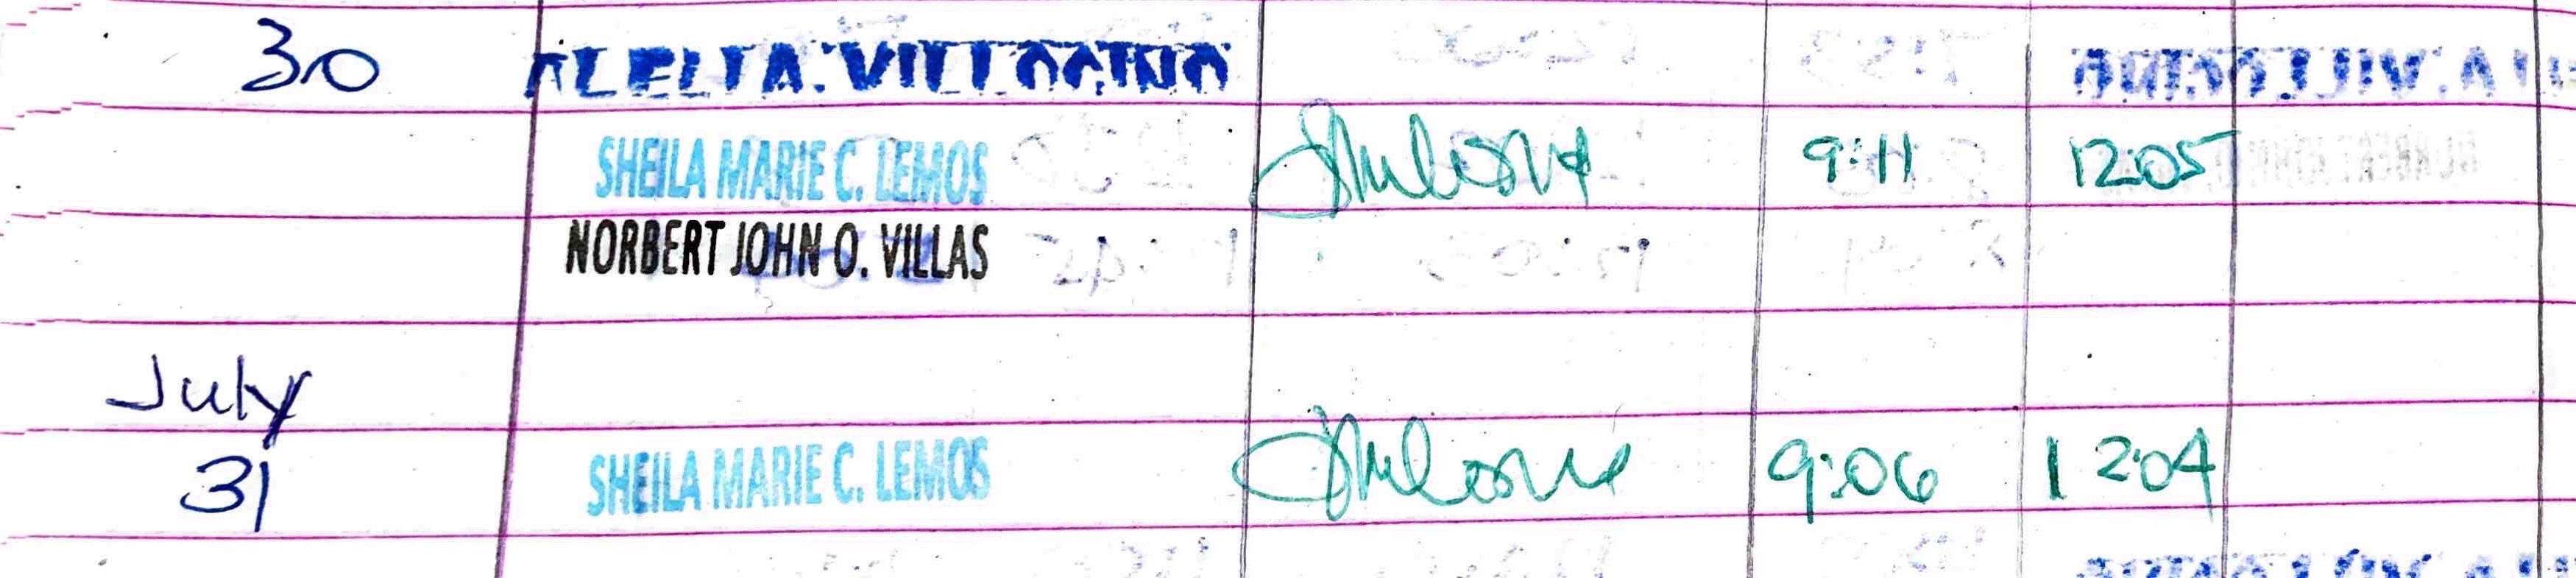 30
SHEILA MARIE C. LEMOS 9:11 12:05
NORBERT JOHN O. VILLAS
July
31 SHEILA MARIE C. LEMOS 9:06 12:04